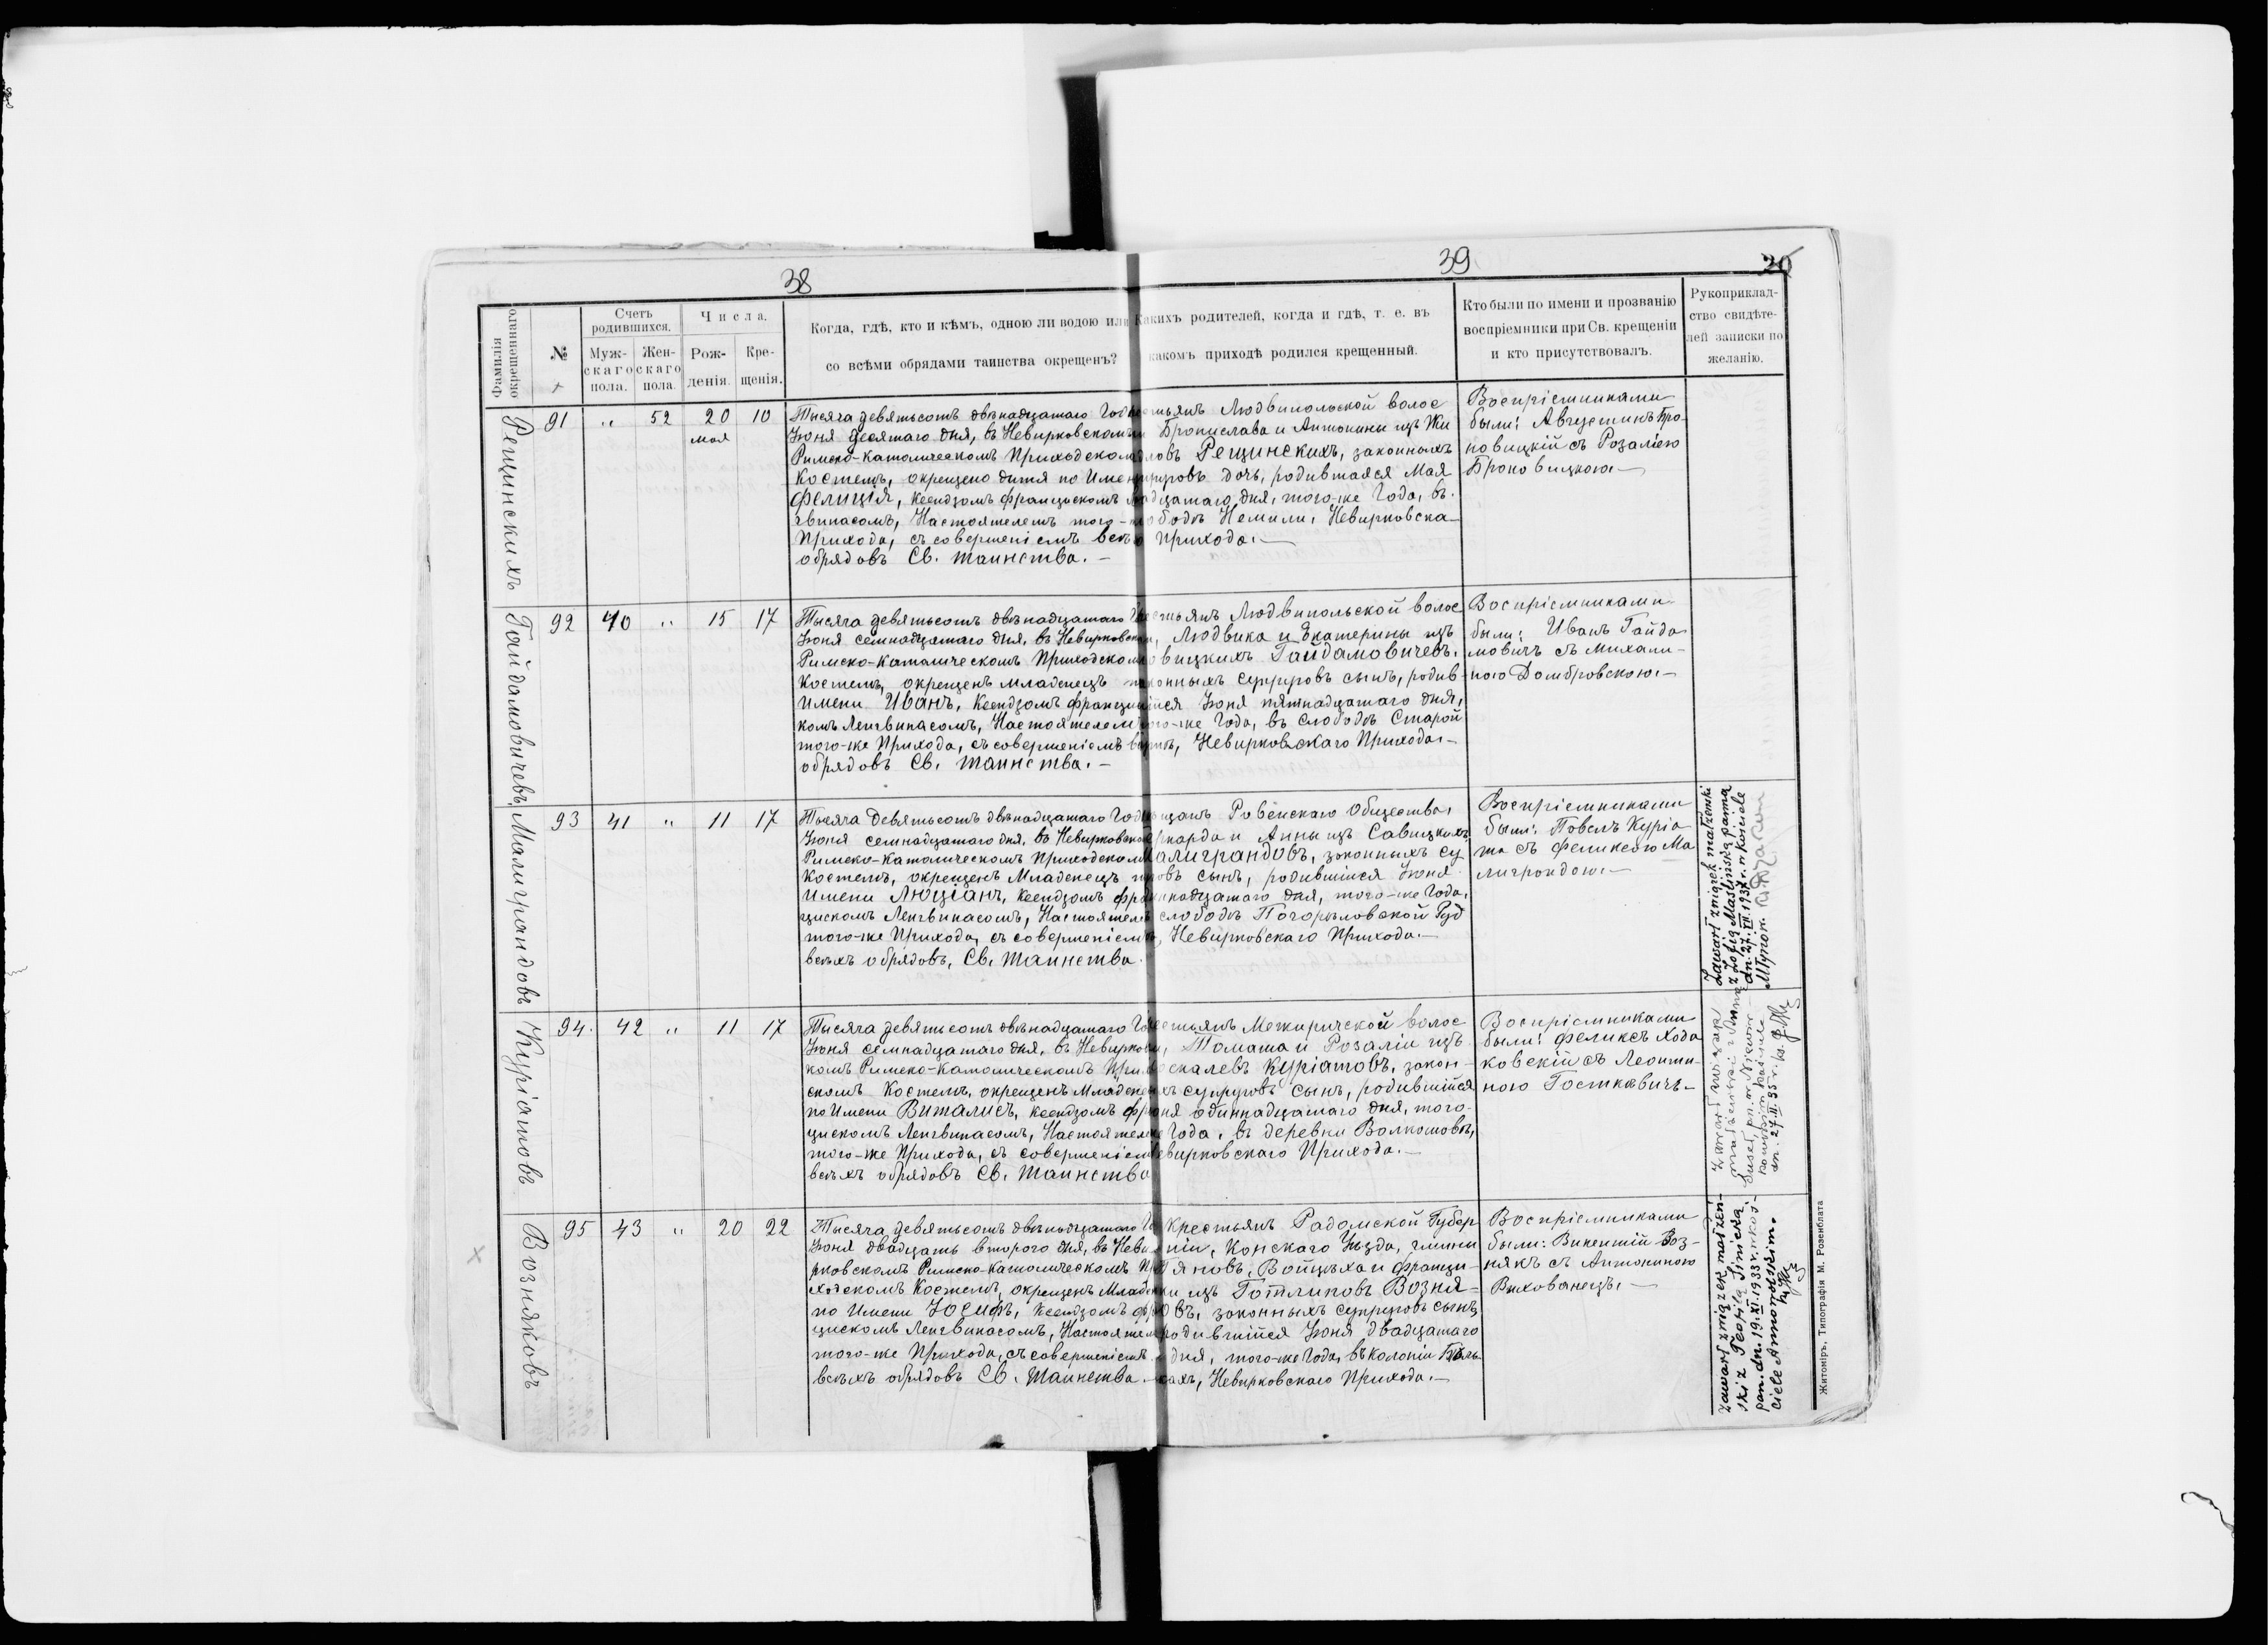 38
39
20
Фамилія окрещеннаго.
№
Счетъ родившихся.
Мужскаго пола.
Женскаго пола.
Числа.
Рожденія.
Крещенія.
Когда, гдѣ, кто и кѣмъ, одною ли водою или
со всѣми обрядами таинства окрещенъ?
какихъ родителей, когда и гдѣ, т. е. въ
какомъ приходѣ родился крещенный.
Кто были по имени и прозванію
воспріемники при Св. крещеніи
и кто присутствовалъ.
Рукоприклад-
ство свидѣте-
лей записки по
желанію.
Рещинскихъ
91 " 52 20 10
мая
Тысяча девятьсотъ двѣнадцатаго Год
Іюня десятаго дня, въ Невирковскомъ
Римско-Католическомъ Приходском
Костелѣ, окрещено дитя по Имен
Фелиція, Ксендзомъ Францискомъ
гвинасомъ, Настоятелемъ того-
Прихода, съ совершеніемъ всѣ
обрядовъ Св. таинства. –
стьянъ Людвипольской волос
Бронислава и Антонины изъ Жи
ловъ Рещинскихъ, законныхъ
пруговъ дочь, родившаяся Мая
дцатаго дня, того-же Года, въ
ободѣ Немили, Невирковска
Прихода. –
Воспріемниками
были: Августинъ Бро-
новицкій съ Розаліею
Броновицкою. –
Гайдамовичевъ
92 40 " 15 17
Тысяча девятьсотъ двѣнадцатаго
Іюня семнадцатаго дня, въ Невирковск
Римско-Католическомъ Приходском
Костелѣ, окрещенъ Младенецъ
Имени Иванъ, Ксендзомъ Францис
комъ Ленгвинасомъ, Настоятелем
того-же Прихода, съ совершеніемъ в
обрядовъ Св. таинства. –
стьянъ Людвипольской волос
Людвика и Екатерины изъ
овицкихъ Гайдамовичевъ,
конныхъ супруговъ сынъ, родив-
шійся Іюня пятнадцатаго дня,
ого-же Года, въ слободѣ Старой
Невирковскаго Прихода. –
Воспріемниками
были: Иванъ Гайда
мовичъ съ Михали-
ною Домбровскою. –
Малиграндовъ
93 41 " 11 17
Тысяча Девятьсотъ двѣнадцатаго Год
Іюня семнадцатаго дня, въ Невирковско
Римско-Католическомъ Приходском
Костелѣ, окрещенъ Младенецъ
Имени Люціанъ, Ксендзомъ Фра
цискомъ Ленгвинасомъ, Настоятел
того-же Прихода, съ совершеніем
всѣхъ обрядовъ, Св. таинства
щанъ Ровенскаго Общества,
рнарда и Анны изъ Савицкихъ
алиграндовъ, законныхъ су
говъ сынъ, родившійся Іюня
иннадцатаго дня, того-же Года,
слободѣ Погорыловской Руд
Невирковскаго Прихода. –
Воспріемниками
были: Павелъ Куріа
та съ Феликсою Ма
лиграндою. –
Zawarł związek małżeński
z Zofią Maślińską panną
dn. 27.XII.1937 r. w kościele
Młynów.
Куріатовъ
94. 42 " 11 17
Тысяча девятьсотъ двѣнадцатаго Го
Іюня семнадцатаго дня, въ Невирков
комъ Римско-Католическомъ При
скомъ Костелѣ, окрещенъ Младене
по Имени Виталисъ, Ксендзомъ Фр
цискомъ Ленгвинасомъ, Настоятел
того-же Прихода, съ совершеніем
всѣхъ обрядовъ Св. таинства
стьянъ Межиричской волос
Томаша и Розаліи изъ
оскалевъ Куріатовъ, закон-
хъ супруговъ сынъ, родившійся
ня одиннадцатаго дня, того-
Года, въ деревни Волкошовѣ,
евирковскаго Прихода. –
Воспріемниками
были: Феликсъ Хода
ковскій съ Леонти-
ною Госткевичъ –
Zawarł związek
małżeński z Anną
dn. 27.II.35 r.
Возняковъ
95 43 " 20 22
Тысяча девятьсотъ двѣнадцатаго Го
Іюня двадцать второго дня, въ Неви
рковскомъ Римско-Католическомъ Пр
ходскомъ Костелѣ, окрещенъ Младе
по Имени Іосифъ, Ксендзомъ Фр
цискомъ Ленгвинасомъ, Настоятел
того-же Прихода, съ совершеніемъ
всѣхъ обрядовъ Св. таинства –
Крестьянъ Радомской Губер
ніи, Конскаго Уѣзда, гмины
Войцѣха и Франци-
ки изъ Готлиповъ Возня-
овъ, законныхъ супруговъ сынъ,
родившійся Іюня двадцатаго
дня, того-же Года, въ колоніи
кахъ, Невирковскаго Прихода. –
Воспріемниками
были: Викентій Воз-
някъ съ Антониною
Выхованецъ. –
Zawarł związek małżeń-
ski z Teofilą Sinicką
pan. dn. 19.XI.1933 r. w koś-
ciele Annopolskim.
Житоміръ, Типографія М. Розенблата